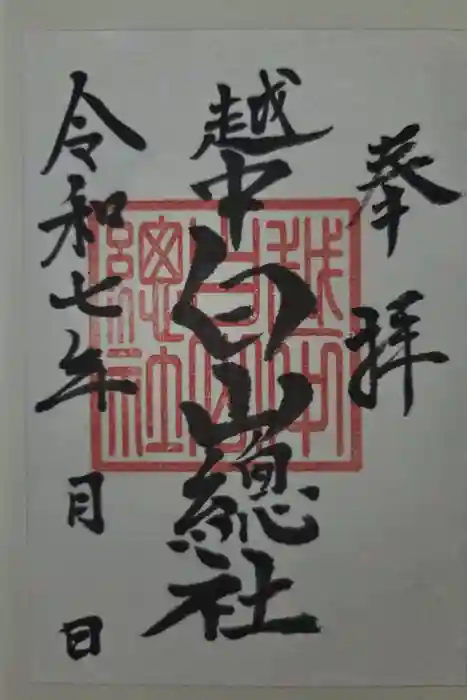 奉拝
越中白山總社
令和七年 月 日
越中
白山
總社